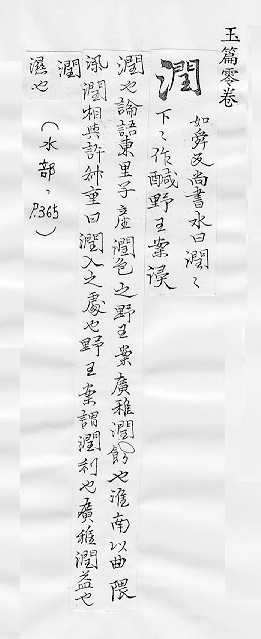 玉篇零卷
潤 如舜反尚書水曰潤〻
下〻作醎野王案浸
潤也論語東里子產潤色之野王案廣雅潤飾也淮南以曲隈
深潤相與許叔重曰潤入之處也野王案謂潤利也廣雅潤益也
潤
濕也 （水部、P.365）